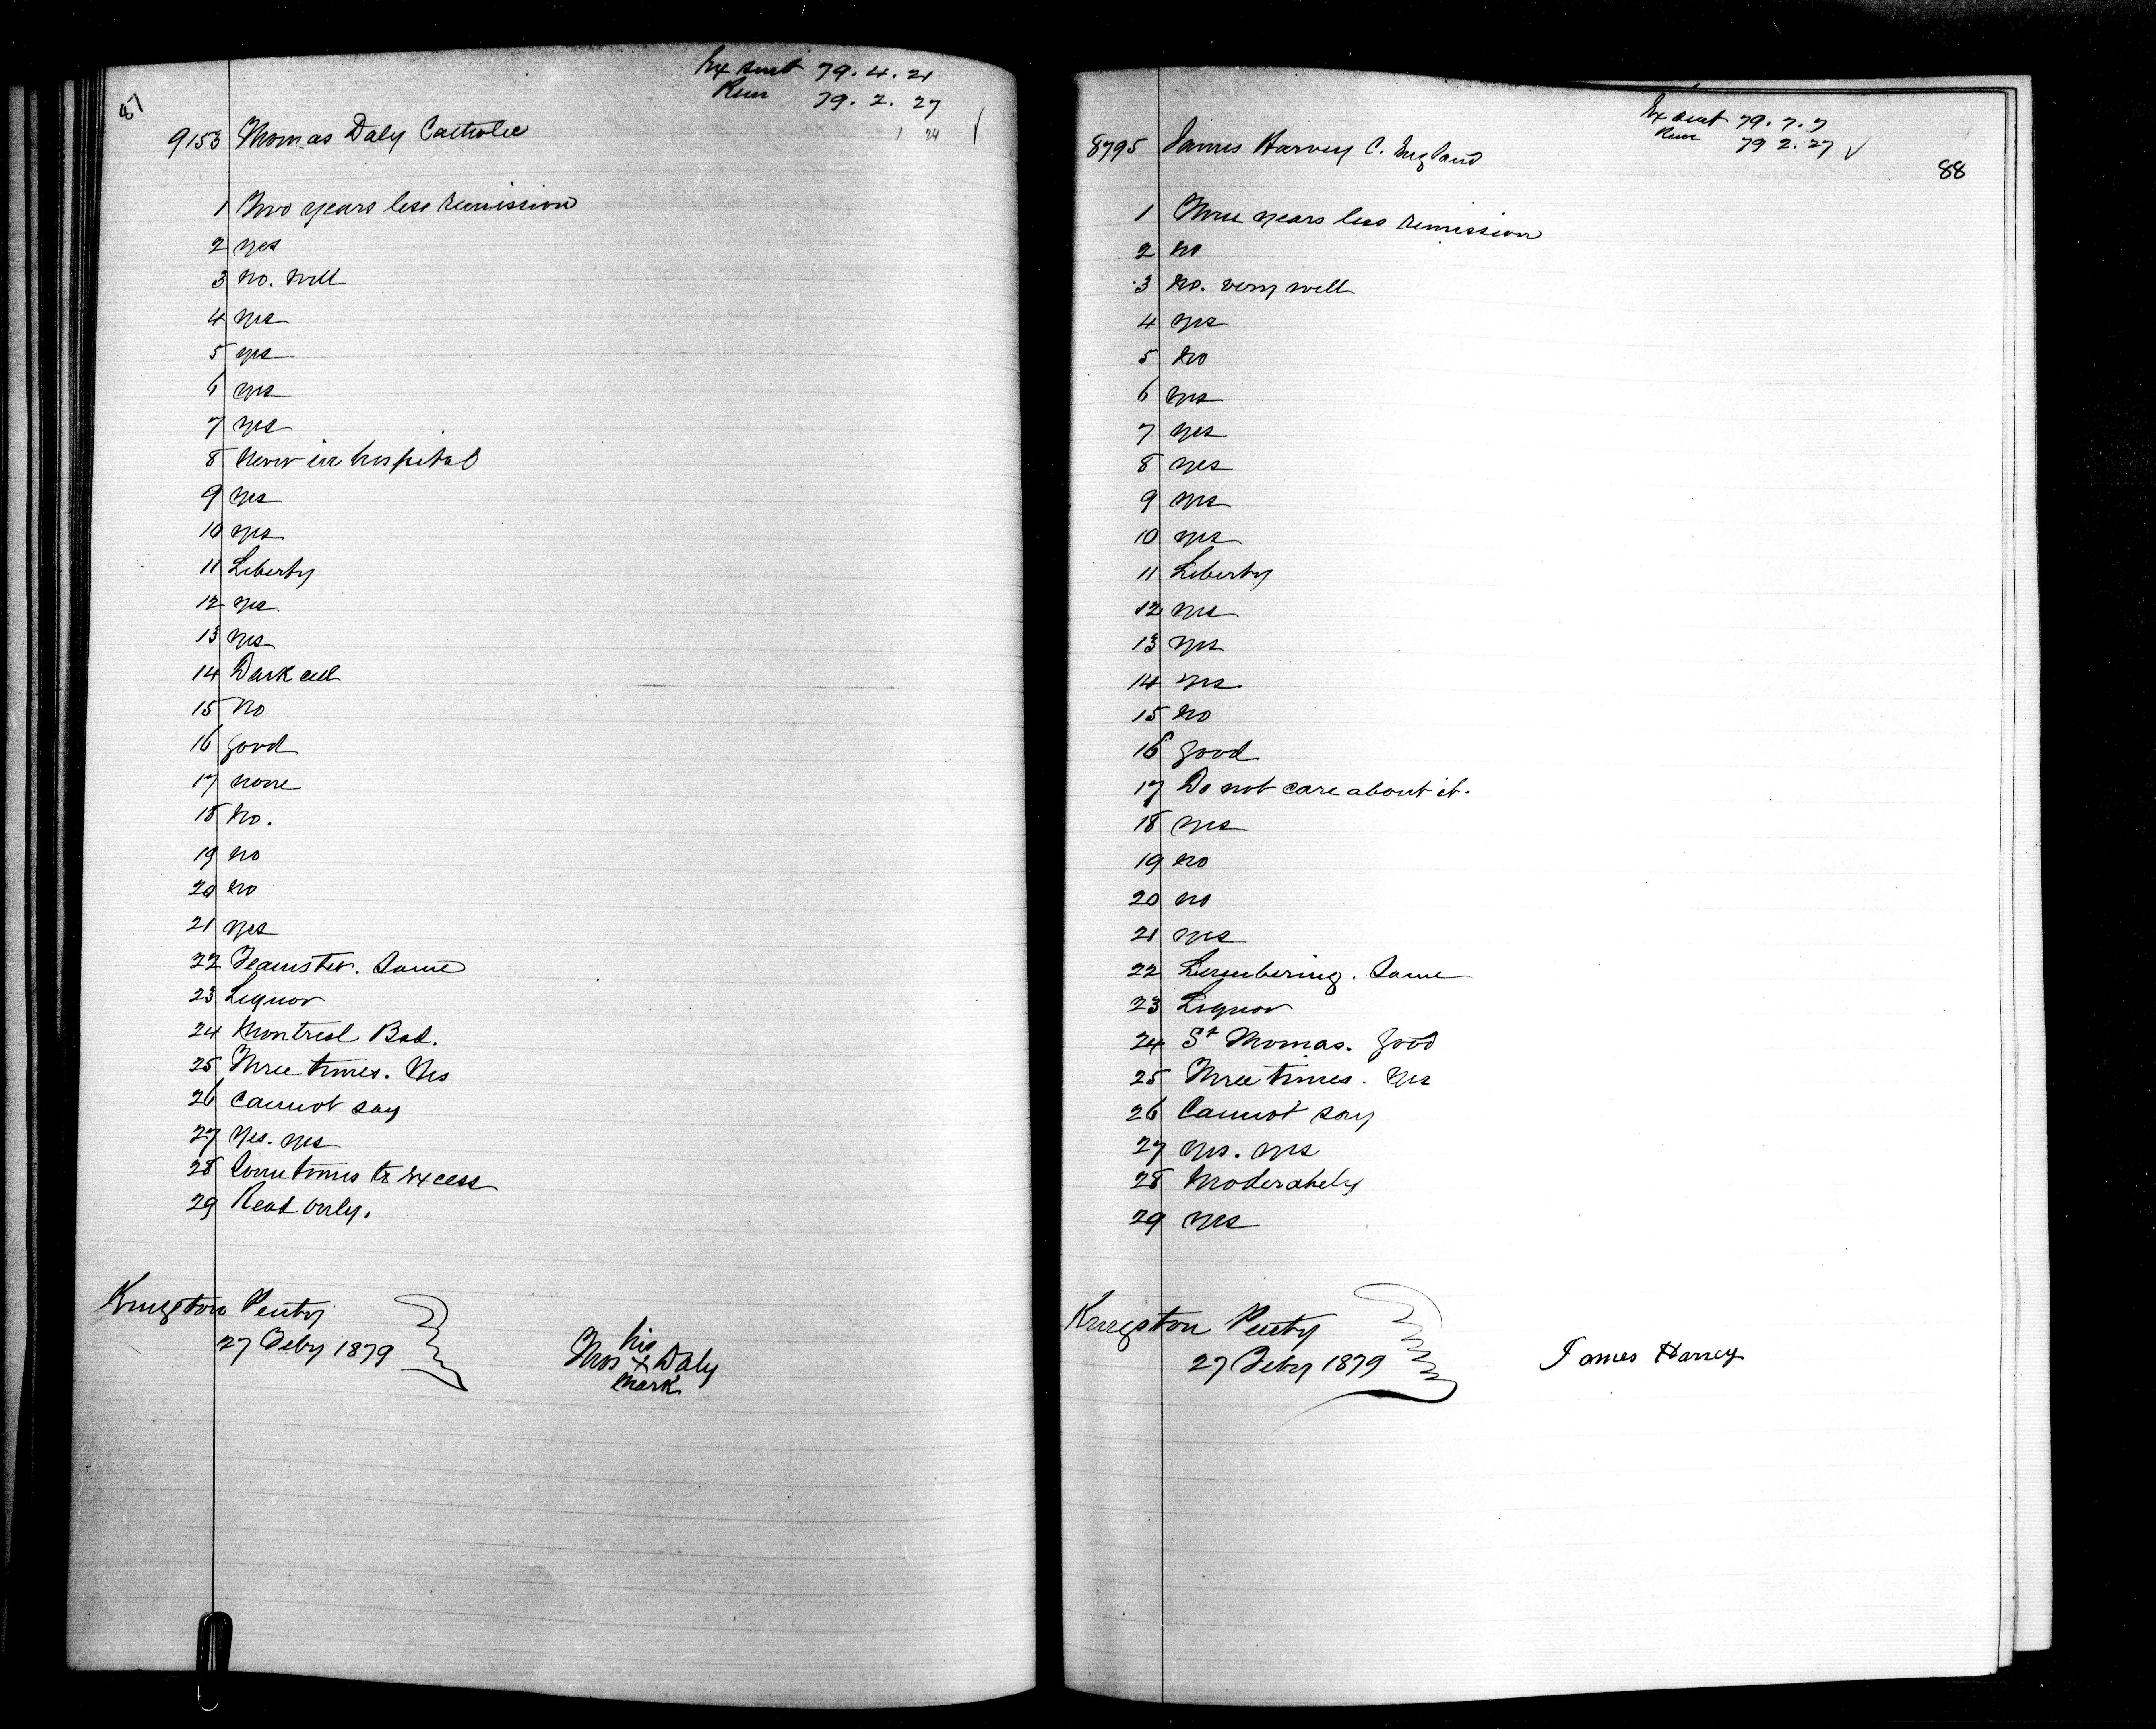 87
Ex sent 79. 4. 21
Rem 79. 2. 27
1 24
9153 Thomas Daly Catholic
1 Two years less remission
2 yes
3 no. well
4 yes
5 yes
6 yes
7 yes
8 Never in hospital
9 yes
10 yes
11 Liberty
12 yes
13 yes
14 Dark cell
15 no
16 good
17 none
18 no.
19 no
20 no
21 yes
22 Teamster. Same
23 Liquor
24 Montreal Bad.
25 Three times. Yes
26 Cannot say
27 Yes. yes
28 Sometimes to excess
29 Read only.
Kingston Penty
27 Feby 1879
his
Thos X Daly
mark
Ex sent 79. 7. 7
Rem 79 2. 27
88
8795 James Harvey C. England
1 Three years less remission
2 no
3 no. very well
4 yes
5 no
6 yes
7 yes
8 yes
9 yes
10 yes
11 Liberty
12 yes
13 yes
14 yes.
15 no
16 good
17 Do not care about it.
18 yes
19 no
20 no
21 yes
22 Lumbering. Same
23 Liquor
24 St Thomas. Good
25 Three times. Yes
26 Cannot say
27 yes. yes
28 Moderately
29 yes
Kingston Penty
27 Feby 1879
James Harvey